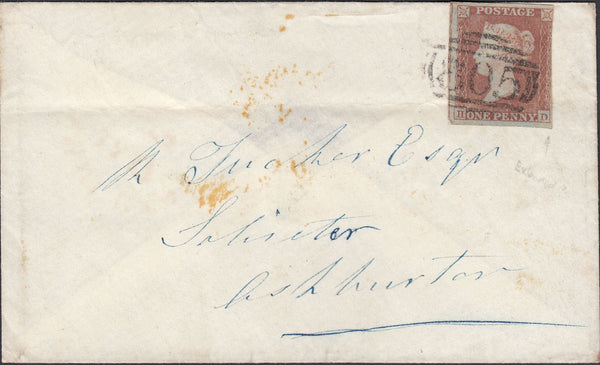 POSTAGE
ONE PENNY
H D
R Tucker Esqr
Solicitor
Ashburton